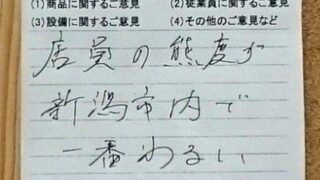 (1)商品に関するご意見 (2)従業員に関するご意見
(3)設備に関するご意見 (4)その他のご意見など
店員の熊度が
新潟市内で
一番わるい